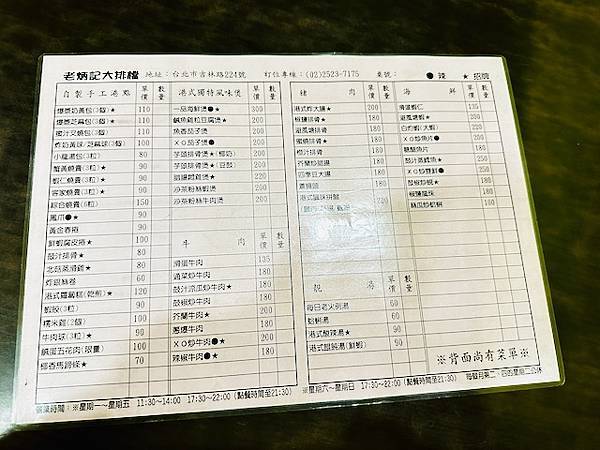 老炳記大排檔 地址：台北市吉林路224號 訂位專線：(02)2523-7175 桌號： ●辣 ★招牌
自製手工港點 單價 數量
爆漿奶黃包(3個)★ 110
爆漿芝麻包(3個)★ 110
蜜汁叉燒包(3個) 110
炸奶黃球/芝麻球(3個) 100
小籠湯包(3粒) 80
蟹黃燒賣(3粒)★ 90
蝦仁燒賣(3粒)★ 90
客家燒賣(3粒) 90
綜合燒賣(6粒) 150
鳳爪●★ 90
黃金春捲 90
鮮蝦腐皮捲★ 100
豉汁排骨★ 80
北菇蒸滑雞★ 80
炸銀絲卷 60
港式蘿蔔糕(乾煎)★ 120
蝦餃(3粒) 90
糯米雞(2個) 100
牛肉球(3粒)★ 90
鹹蛋五花肉(限量) 100
椰香馬蹄條★ 70
港式獨特風味煲 單價 數量
一品海鮮煲●★ 300
鹹魚雞粒豆腐煲★ 200
魚香茄子煲 200
XO茄子煲● 200
芋頭排骨煲★(椰奶) 200
芋頭排骨煲★(豆豉) 200
沙茶粉絲蝦煲 200
沙茶粉絲牛肉煲 200
牛肉 單價 數量
滑蛋牛肉 135
通菜炒牛肉 180
豉汁涼瓜炒牛肉★ 180
豉椒炒牛肉 180
芥蘭牛肉★ 180
蔥爆牛肉 180
XO炒牛肉●★ 200
辣椒牛肉●★ 180
豬肉 單價 數量
港式炸大腸★ 200
椒鹽排骨★ 180
避風塘排骨★ 180
蜜燒排骨★ 180
橙汁排骨 180
芥蘭炒臘腸 180
四季豆大腸 180
靚湯 單價 數量
每日老火例湯 60
港式酸辣湯★ 60
港式餛飩湯(鮮蝦) 90
海鮮 單價 數量
滑蛋蝦仁 135
避風塘蝦★ 200
白灼蝦(大蝦) 220
XO炒魚片● 200
豉汁蒸鱈魚★ 250
XO炒雙鮮● 250
豉椒炒蜆★ 180
椒鹽魷魚 180
絲瓜炒蛤蜊 180
※背面尚有菜單※
營業時間：※星期一～星期五 11:30~14:00 17:30~22:00(點餐時間至21:30) ※星期六～星期日 17:30~22:00(點餐時間至21:30) 每個月第二、四的星期二公休